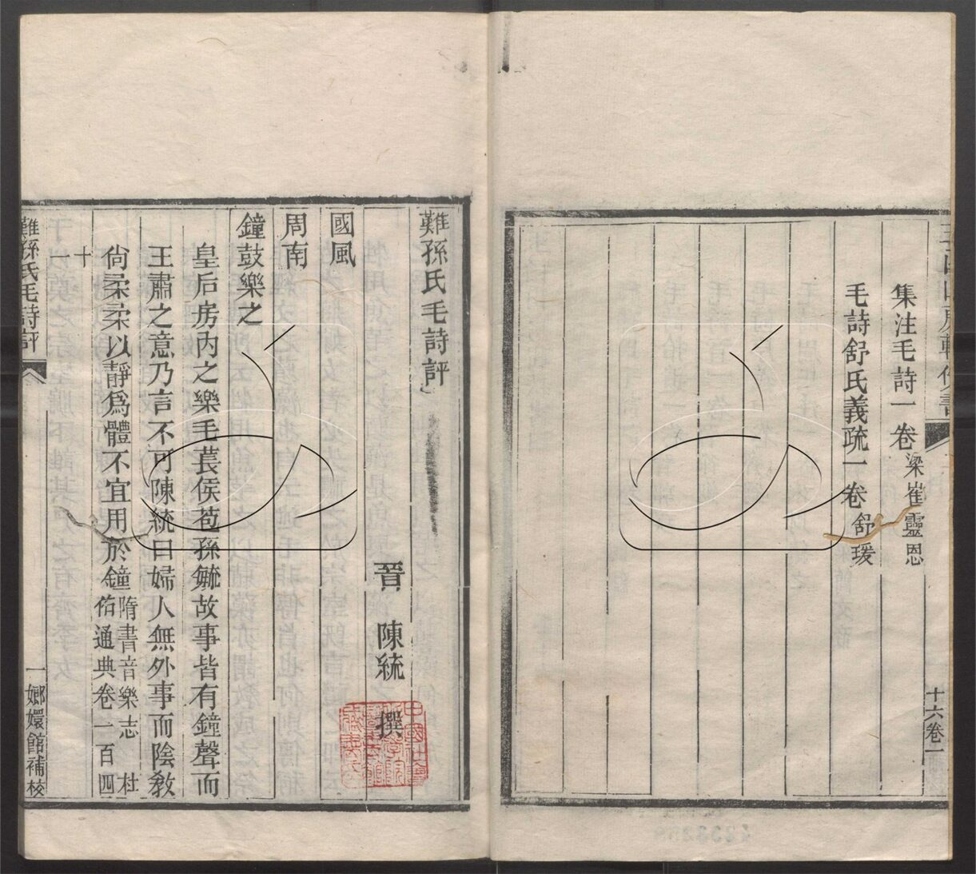 十六卷一
集注毛詩一卷梁崔靈恩
毛詩舒氏義疏一卷舒瑗
難孫氏毛詩評
晉 陳統 撰
國風
周南
鐘鼓樂之
皇后房內之樂毛萇侯苞孫毓故事皆有鐘聲而
王肅之意乃言不可陳統曰婦人無外事而陰教
尚柔柔以靜為體不宜用於鐘隋書音樂志 杜
佑通典卷一百四
十一
難孫氏毛詩評
一
嫏嬛館補校